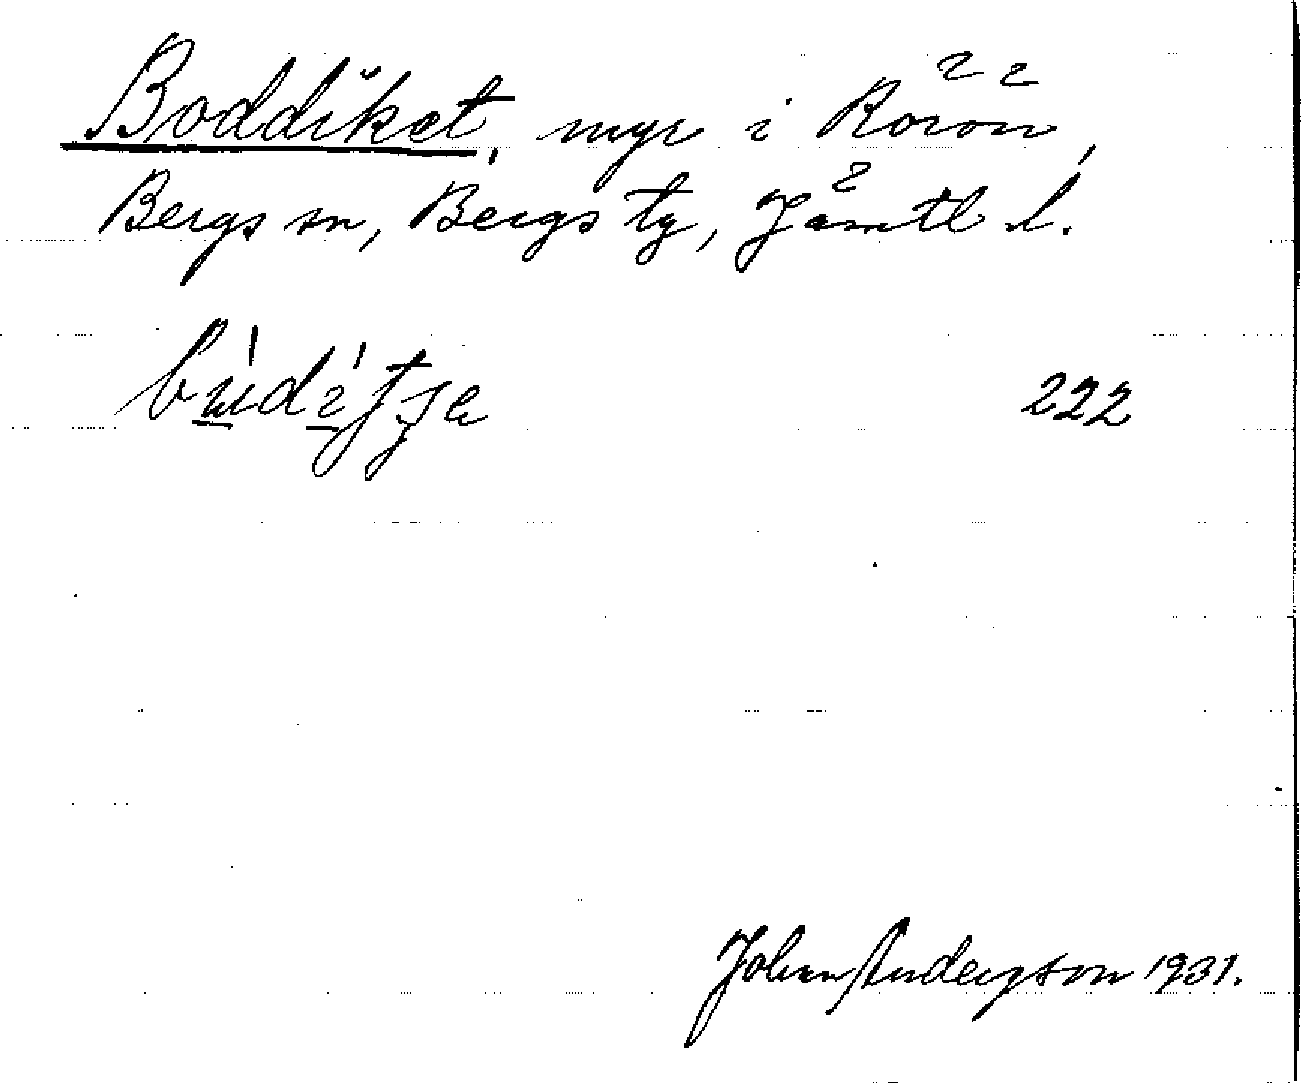 Boddiket, myr i Rörön,
Bergs sn, Bergs tg, Jämtl l.
222
Johan Anderson 1931.